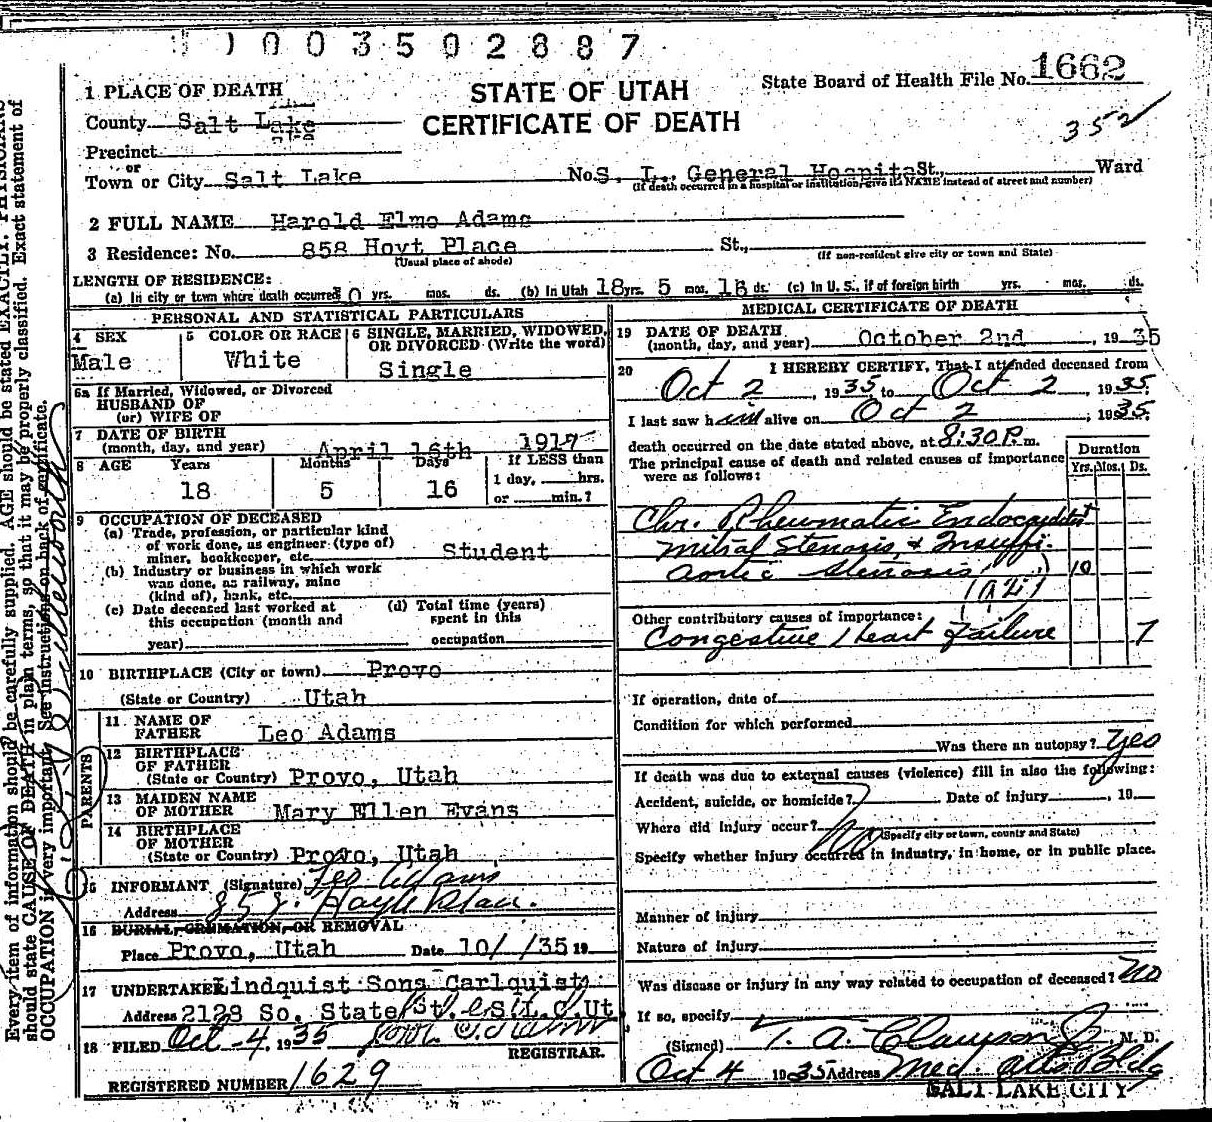 1003502887
State Board of Health File No. 1662
352
STATE OF UTAH
CERTIFICATE OF DEATH
1 PLACE OF DEATH
County Salt Lake
Precinct
or
Town or City Salt Lake No. S. L. General Hospital St., Ward
(If death occurred in a hospital or institution, give its NAME instead of street and number)
2 FULL NAME Harold Elmo Adams
3 Residence: No. 858 Hoyt Place St.,
(Usual place of abode) (If non-resident give city or town and State)
LENGTH OF RESIDENCE:
(a) In city or town where death occurred yrs. mos. ds. (b) In Utah 18 yrs. 5 mos. 16 ds. (c) In U. S. if of foreign birth yrs. mos. ds.
PERSONAL AND STATISTICAL PARTICULARS
4 SEX
Male
5 COLOR OR RACE
White
6 SINGLE, MARRIED, WIDOWED, OR DIVORCED (Write the word)
Single
5a If Married, Widowed, or Divorced
HUSBAND OF
(or) WIFE OF
7 DATE OF BIRTH
(month, day, and year) April 16th 1917
8 AGE Years Months Days If LESS than
18 5 16 1 day, hrs.
or min.?
9 OCCUPATION OF DECEASED
(a) Trade, profession, or particular kind
of work done, as engineer (type of)
miner, bookkeeper, etc. Student
(b) Industry or business in which work
was done, as railway, mine
(kind of), bank, etc.
(c) Date deceased last worked at
this occupation (month and
year)
(d) Total time (years)
spent in this
occupation
10 BIRTHPLACE (City or town) Provo
(State or Country) Utah
PARENTS
11 NAME OF
FATHER Leo Adams
12 BIRTHPLACE
OF FATHER
(State or Country) Provo, Utah
13 MAIDEN NAME
OF MOTHER Mary Ellen Evans
14 BIRTHPLACE
OF MOTHER
(State or Country) Provo, Utah
15 INFORMANT (Signature) Leo Adams
Address 858 Hoyt Place.
16 BURIAL, CREMATION, OR REMOVAL
Place Provo, Utah Date 10/ /35 19
17 UNDERTAKER Lindquist Sons Carlquist
Address 2128 So. State St. S.L.C. Ut
18 FILED Oct-4 1935
REGISTRAR.
REGISTERED NUMBER 1629
MEDICAL CERTIFICATE OF DEATH
19 DATE OF DEATH
(month, day, and year) October 2nd, 1935
20 I HEREBY CERTIFY, That I attended deceased from
Oct 2, 1935 to Oct 2 1935.
I last saw him alive on Oct 2, 1935.
death occurred on the date stated above, at 8:30 P. m.
The principal cause of death and related causes of importance
were as follows:
Duration
Yrs. Mos. Ds.
Chr. Rheumatic Endocarditis
Mitral Stenosis, & Insuffi.
Aortic Stenosis, 10
(92)
Other contributory causes of importance:
Congestive Heart Failure 7
If operation, date of
Condition for which performed
Was there an autopsy? Yes
If death was due to external causes (violence) fill in also the following:
Accident, suicide, or homicide? Date of injury , 19
Where did injury occur? No
(Specify city or town, county and State)
Specify whether injury occurred in industry, in home, or in public place.
Manner of injury
Nature of injury
Was disease or injury in any way related to occupation of deceased? No
If so, specify
(Signed) T. A. Clawson Jr M. D.
Oct 4 1935 Address Med. Arts Bldg
SALT LAKE CITY
Every item of information should be carefully supplied. AGE should be stated EXACTLY. PHYSICIANS
should state CAUSE OF DEATH in plain terms, so that it may be properly classified. Exact statement of
OCCUPATION is very important. See instructions on back of certificate.